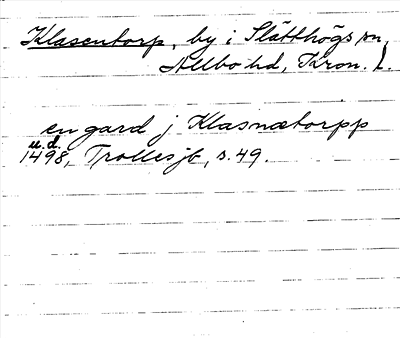 Klasentorp, by i Slätthögs sn,
Allbo hd, Kron. l.
en gard j Klasnætorpp
u.d.
1498, Trollesjb, s. 49.